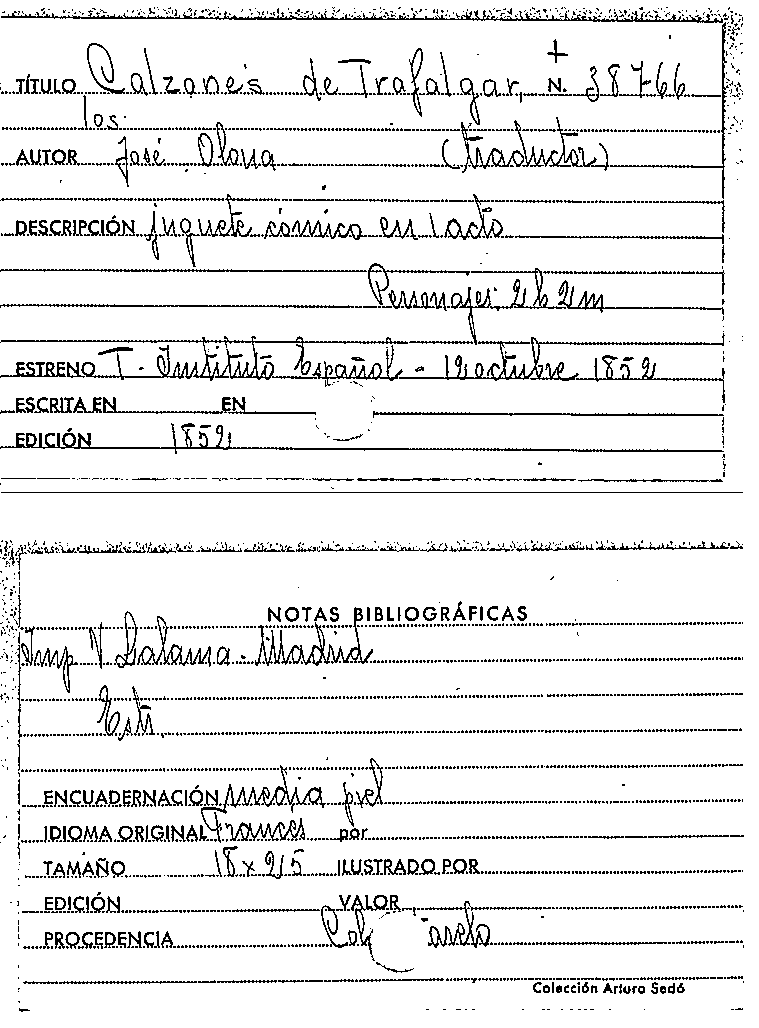 TÍTULO Calzones de Trafalgar, N. 38766
los.
AUTOR José Olona (traductor)
DESCRIPCIÓN juguete cómico en 1 acto
Personajes: 2 h 2 m
ESTRENO T. Instituto Español - 12 octubre 1852
ESCRITA EN EN
EDICIÓN 1852
NOTAS BIBLIOGRÁFICAS
Imp V Lalama - Madrid
Estr.
ENCUADERNACIÓN media piel
IDIOMA ORIGINAL Frances por
TAMAÑO ILUSTRADO POR
EDICIÓN VALOR
PROCEDENCIA
Colección Arturo Sedó